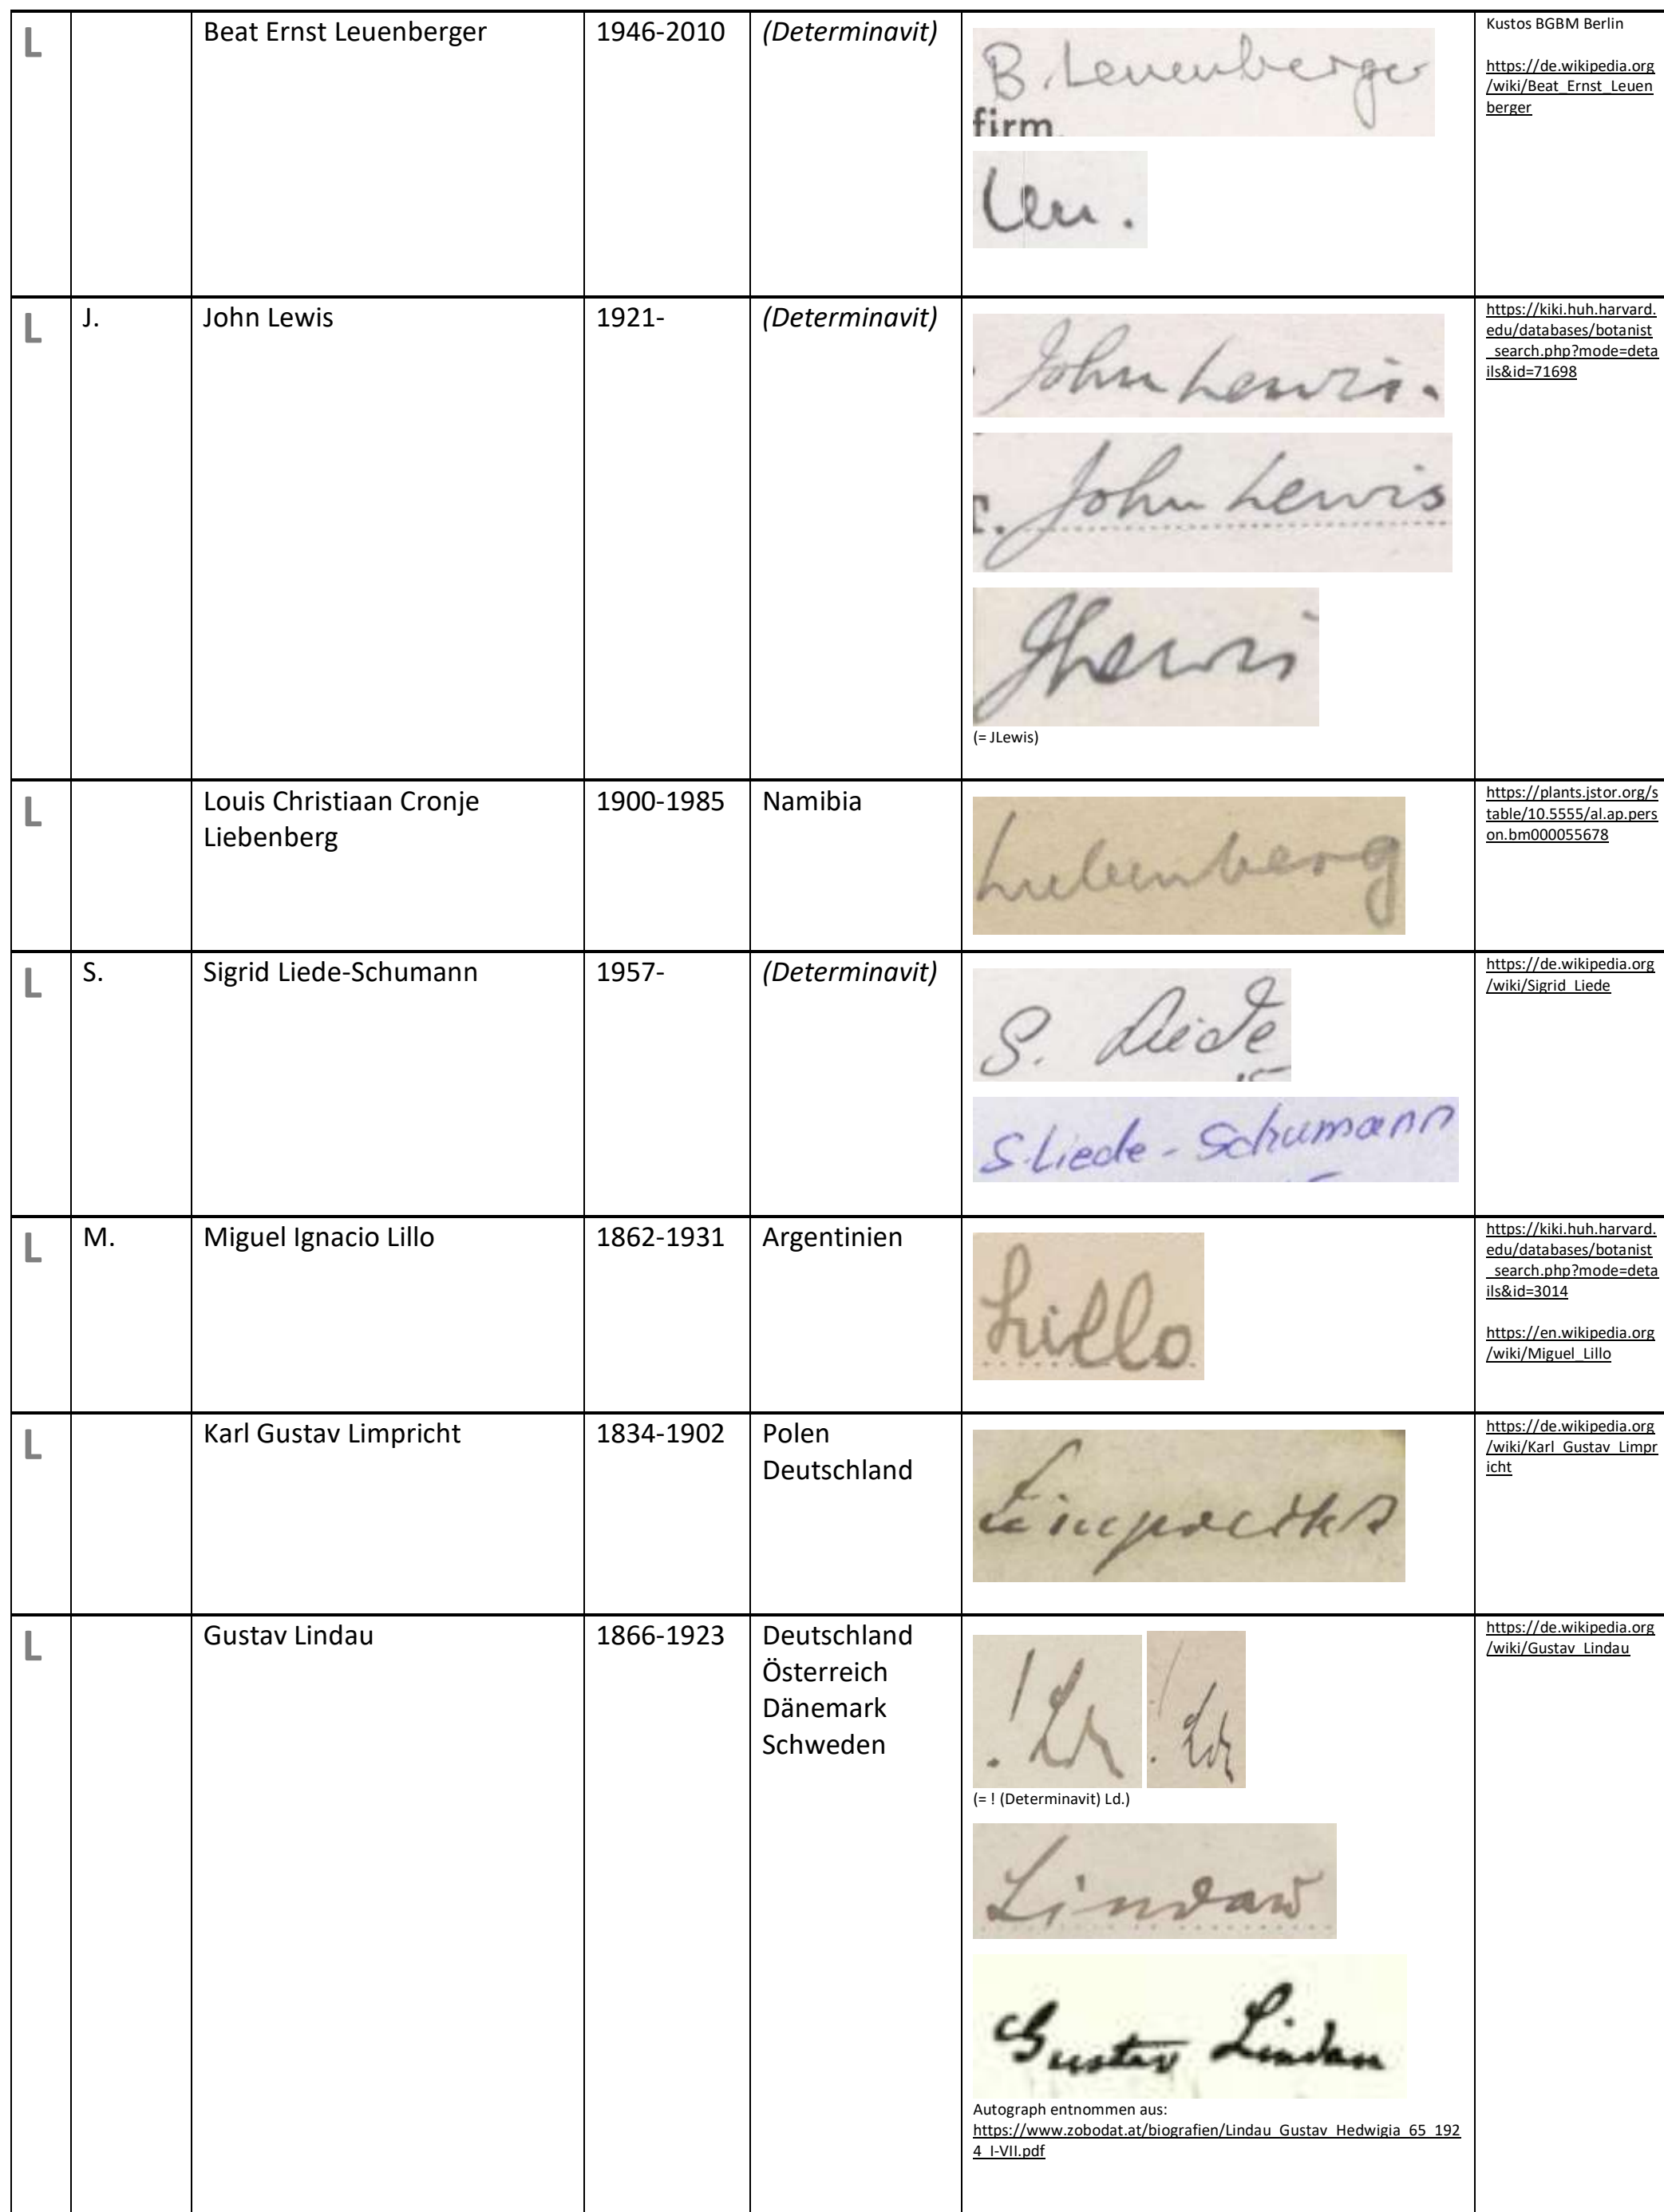 L
Beat Ernst Leuenberger
1946-2010
(Determinavit)
B. Leuenberger
firm.
Leu.
Kustos BGBM Berlin
https://de.wikipedia.org
/wiki/Beat_Ernst_Leuen
berger
L
J.
John Lewis
1921-
(Determinavit)
John Lewis.
. John Lewis
JLewis
(= JLewis)
https://kiki.huh.harvard.
edu/databases/botanist
_search.php?mode=deta
ils&id=71698
L
Louis Christiaan Cronje
Liebenberg
1900-1985
Namibia
Liebenberg
https://plants.jstor.org/s
table/10.5555/al.ap.pers
on.bm000055678
L
S.
Sigrid Liede-Schumann
1957-
(Determinavit)
S. Liede
S.Liede-Schumann
https://de.wikipedia.org
/wiki/Sigrid_Liede
L
M.
Miguel Ignacio Lillo
1862-1931
Argentinien
Lillo
https://kiki.huh.harvard.
edu/databases/botanist
_search.php?mode=deta
ils&id=3014
https://en.wikipedia.org
/wiki/Miguel_Lillo
L
Karl Gustav Limpricht
1834-1902
Polen
Deutschland
Limpricht
https://de.wikipedia.org
/wiki/Karl_Gustav_Limpr
icht
L
Gustav Lindau
1866-1923
Deutschland
Österreich
Dänemark
Schweden
! Ld. ! Ld.
(= ! (Determinavit) Ld.)
Lindau
Gustav Lindau
Autograph entnommen aus:
https://www.zobodat.at/biografien/Lindau_Gustav_Hedwigia_65_192
4_I-VII.pdf
https://de.wikipedia.org
/wiki/Gustav_Lindau